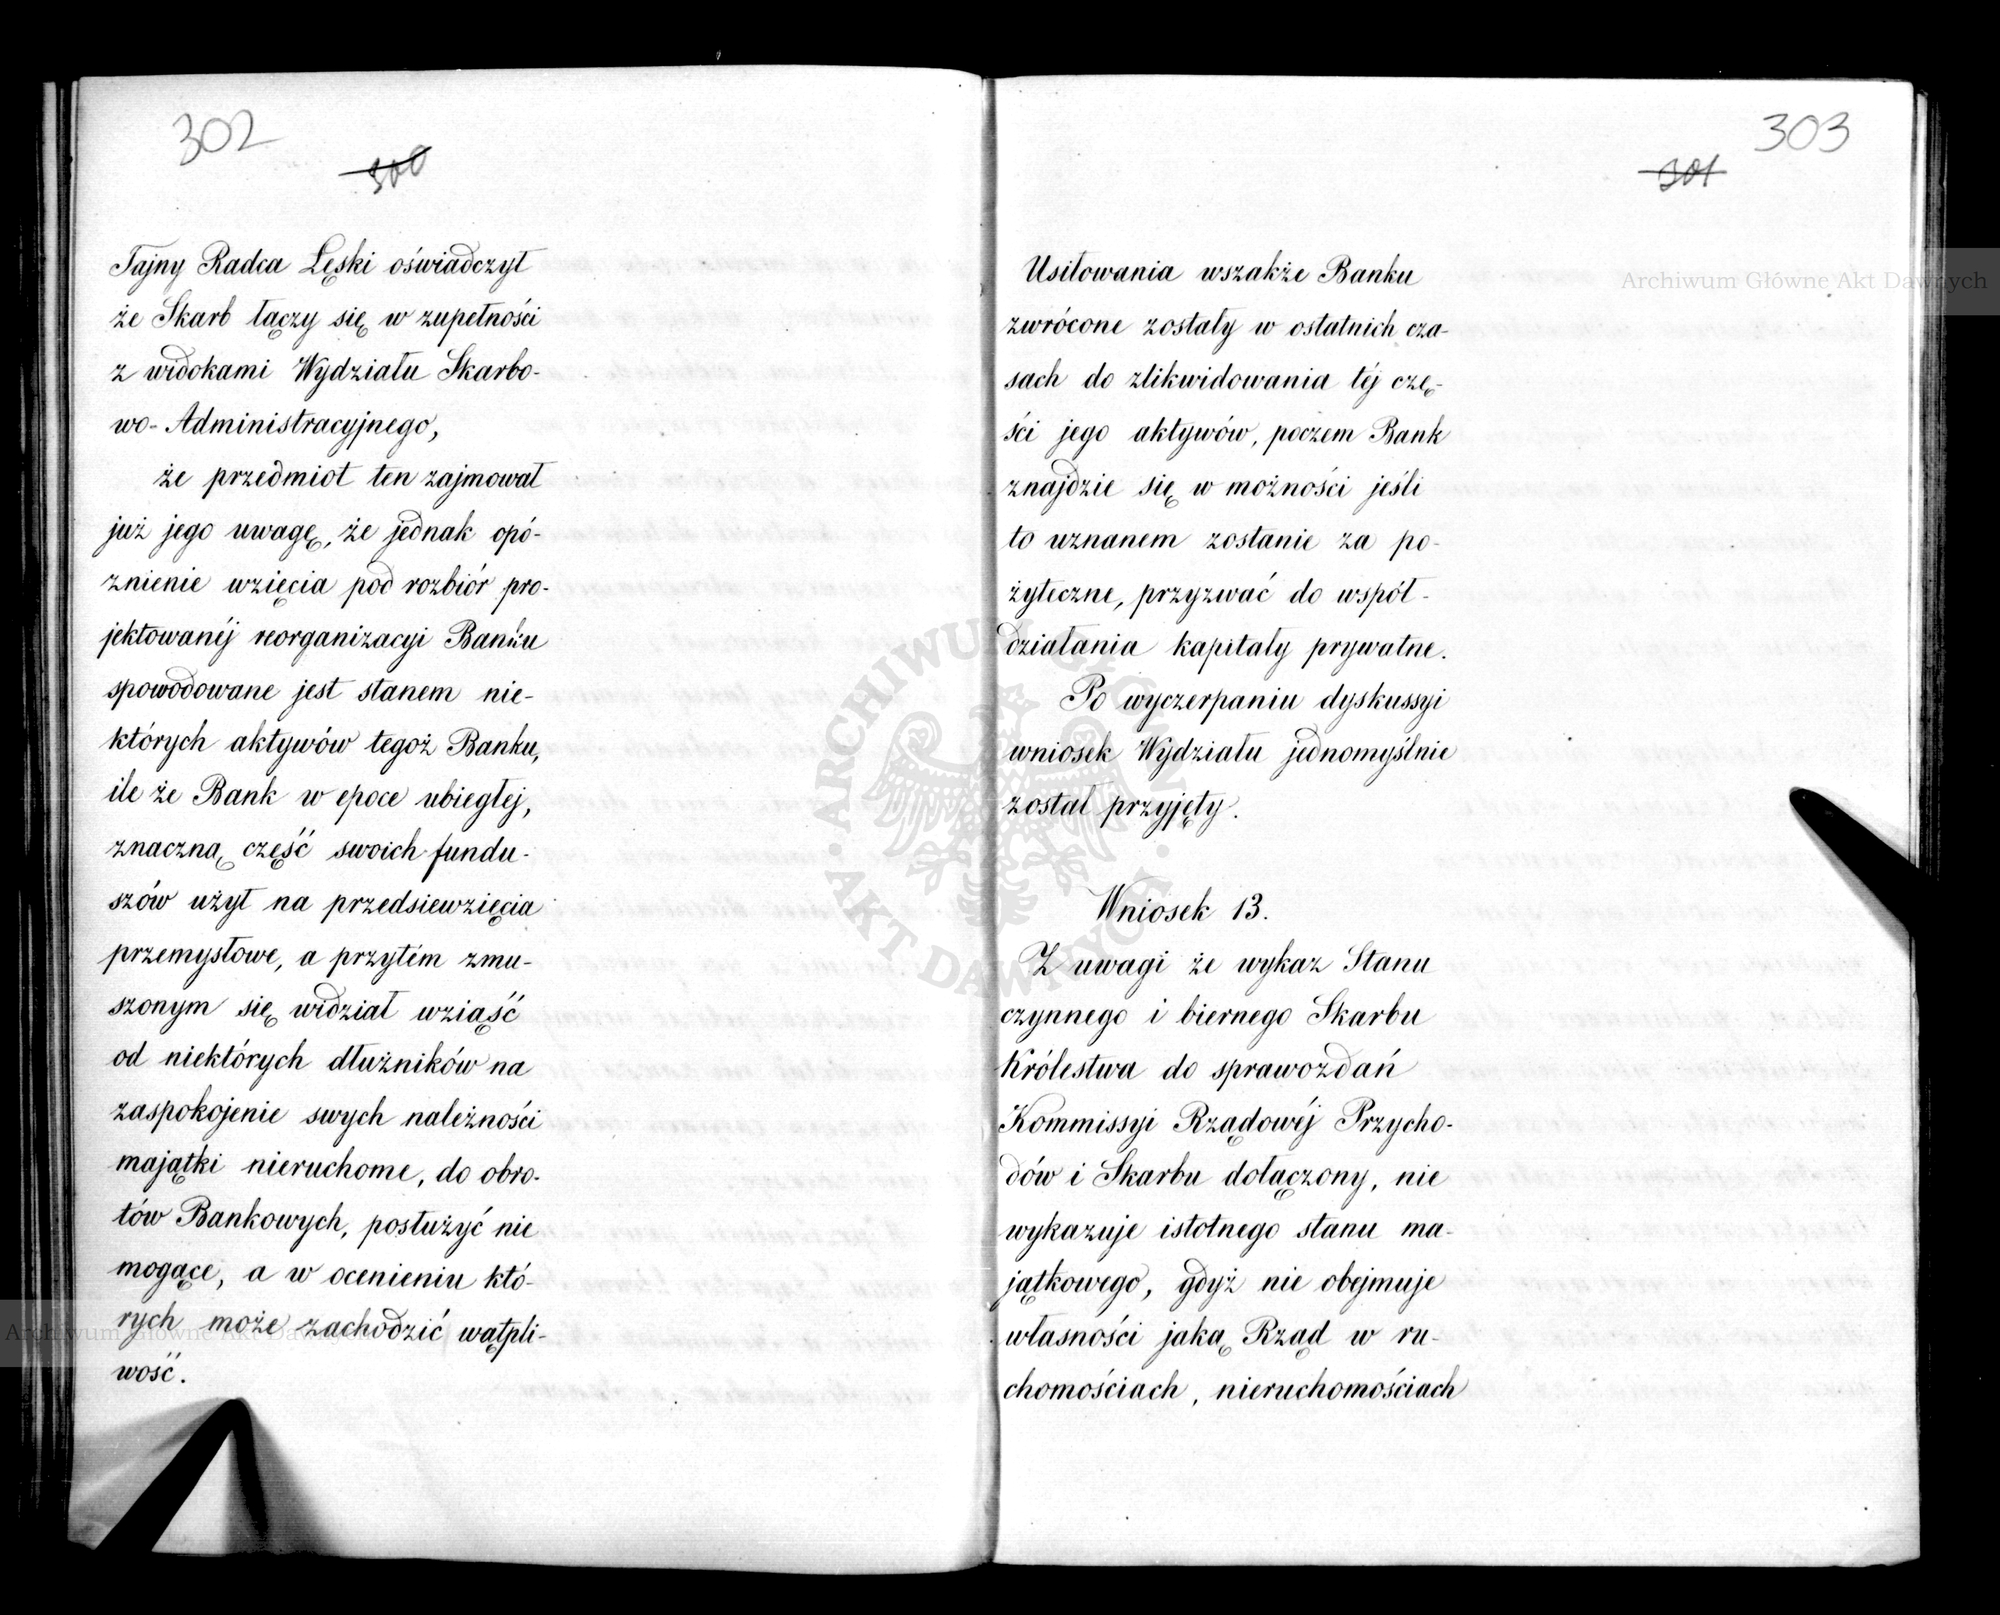 302
300
Tajny Radca Łęski oświadczył
że Skarb łączy się w zupełności
z widokami Wydziału Skarbo-
wo-Administracyjnego,
że przedmiot ten zajmował
już jego uwagę, że jednak opó-
znienie wzięcia pod rozbiór pro-
jektowanéj reorganizacyi Banku
spowodowane jest stanem nie-
których aktywów tegoż Banku,
ile że Bank w epoce ubiegłej,
znaczną część swoich fundu-
szów użył na przedsiewzięcia
przemysłowe, a przytém zmu-
szonym się widział wziąść
od niektórych dłużników na
zaspokojenie swych należności
majątki nieruchome, do obro-
tów Bankowych, posłużyć nie
mogące, a w ocenieniu któ-
rych może zachodzić wątpli-
wość.
303
301
Usiłowania wszakże Banku
zwrócone zostały w ostatnich cza-
sach do zlikwidowania téj czę-
ści jego aktywów, poczem Bank
znajdzie się w możności jeśli
to uznanem zostanie za po-
żyteczne, przyzwać do współ-
działania kapitały prywatne.
Po wyczerpaniu dyskussyi
wniosek Wydziału jednomyślnie
został przyjęty.
Wniosek 13.
Z uwagi że wykaz Stanu
czynnego i biernego Skarbu
Królestwa do sprawozdań
Kommissyi Rządowéj Przycho-
dów i Skarbu dołączony, nie
wykazuje istotnego stanu ma-
jątkowego, gdyż nie obejmuje
własności jaką Rząd w ru-
chomościach, nieruchomościach
Archiwum Główne Akt Dawnych
Archiwum Główne Akt Dawnych
ARCHIWUM GŁÓWNE AKT DAWNYCH